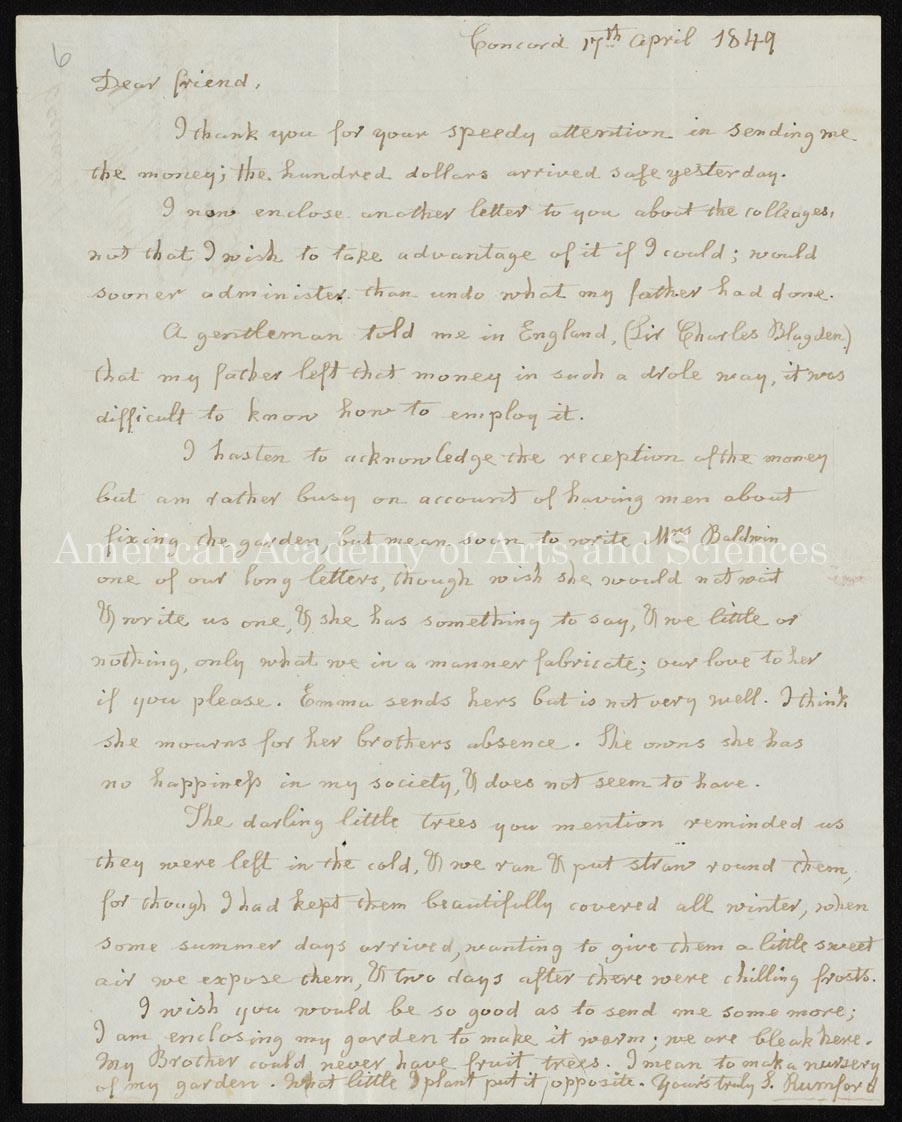 6
Concord 17th April 1849
Dear friend,
I thank you for your speedy attention in sending me
the money; the hundred dollars arrived safe yesterday.
I now enclose another letter to you about the colleages,
not that I wish to take advantage of it if I could; would
sooner administer than undo what my father had done.
A gentleman told me in England, (Sir Charles Blagden)
that my father left that money in such a drole way, it was
difficult to know how to employ it.
I hasten to acknowledge the reception of the money
but am rather busy on account of having men about
fixing the garden, but mean soon to write Mrs Baldwin
American Academy of Arts and Sciences
one of our long letters, though wish she would not wait
& write us one, & she has something to say, & we little or
nothing, only what we in a manner fabricate; our love to her
if you please. Emma sends hers but is not very well. I think
she mourns for her brothers absence. She owns she has
no happiness in my society, & does not seem to have.
The darling little trees you mention reminded us
they were left in the cold, & we ran & put straw round them,
for though I had kept them beautifully covered all winter, when
some summer days arrived, wanting to give them a little sweet
air we expose them, & two days after there were chilling frosts.
I wish you would be so good as to send me some more;
I am enclosing my garden to make it warm; we are bleak here.
My Brother could never have fruit trees. I mean to make a nursery
of my garden. What little I plant put it opposite. Yours truly S. Rumford